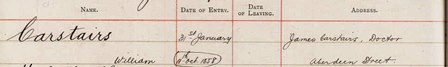 NAME. DATE OF ENTRY. DATE OF LEAVING. ADDRESS.
Carstairs 31st January James Carstairs, Doctor
William Oct. 1858 Aberdeen Street.